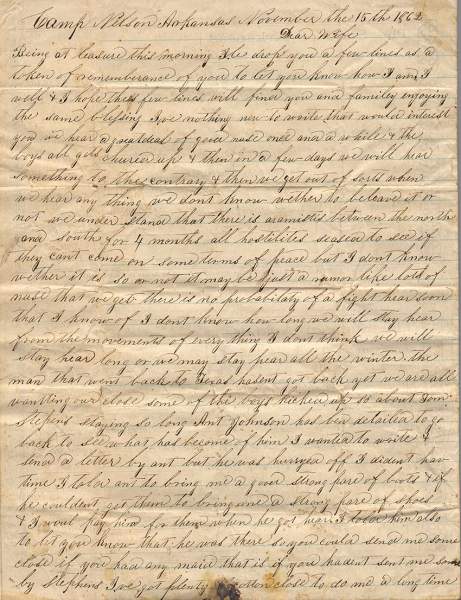 Camp Nelson Arkansas November the 15th 1862
Dear Wife
Being at leasure this morning Ile drop you a few lines as a
token of rememberance of you to let you know how I am I
well & I hope thes few lines will find you and familey enjoying
the same blessing I've nothing new to write that would interest
you we hear a great deal of good nuse once and a while & the
boys all gets cheered up & then in a few days we will hear
something to the contrary & then we get out of sorts when
we hear any thing we dont know wether to beleave it or
not we under stand that there is aramistis between the north
and South for 4 months all hostilites seased to see if
they cant come on some terms of peace but I dont know
wether it is so or not it may be just a rumor like lots of
nuse that we get there is no probability of a fight hear soon
that I know of I dont know how long we will stay hear
from the movements of every thing I dont think we will
stay hear long or we may stay hear all the winter the
man that went back to Texas hasent got back yet we are all
wanting our close some of the boys kicked up so about Tom
Stephens staying so long Ant Johnson has bin detailed to go
back to see what has become of him I wanted to write &
send a letter by ant but he was hurryed off I dident hav
time I told ant to bring me a good strong pare of boots & if
he couldent get them to bring me a strong pare of shoes
& I would pay him for them when he got hear I told him also
to let you know that he was there so you could send me some
close if you had any maid that is if you hadent sent me some
by Stephens I've got plenty cotton close to do me a long time